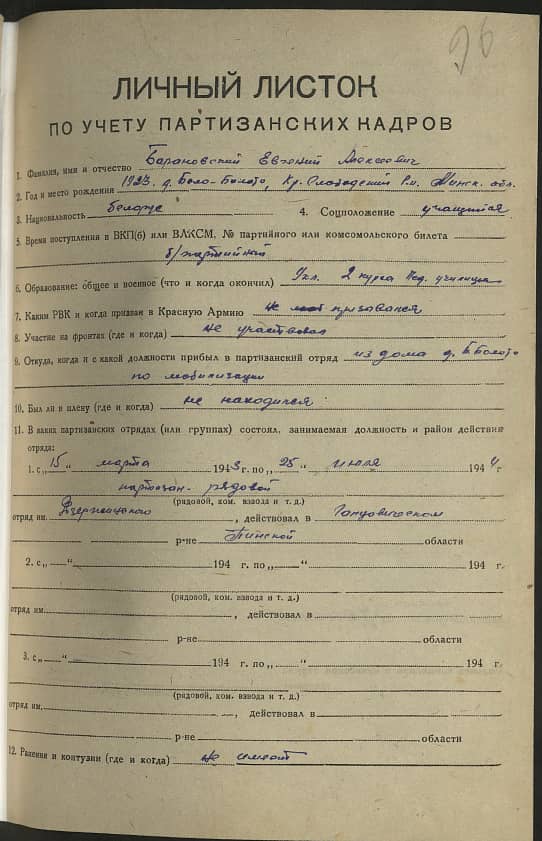 96
ЛИЧНЫЙ ЛИСТОК
ПО УЧЕТУ ПАРТИЗАНСКИХ КАДРОВ
1. Фамилия, имя и отчество Барановский Евгений Алексеевич
2. Год и место рождения 1923 д. Боло-Болото, Кр. Слободский Р-н, Минск. обл.
3. Национальность белорус 4. Соцположение учащийся
5. Время поступления в ВКП(б) или ВЛКСМ, № партийного или комсомольского билета
б/партийный
6. Образование: общее и военное (что и когда окончил) 2 курса Пед. училища
7. Каким РВК и когда призван в Красную Армию не призывался
8. Участие на фронтах (где и когда) не участвовал
9. Откуда, когда и с какой должности прибыл в партизанский отряд из дома д. Б Болото
по мобилизации
10. Был ли в плену (где и когда) не находился
11. В каких партизанских отрядах (или группах) состоял, занимаемая должность и район действия
отряда:
1. с „15“ марта 1943 г. по „25“ июля 1944 г.
партизан. рядовой
(рядовой, ком. взвода и т. д.)
отряд им. Дзержинского, действовал в Ганцевичском
р-не Пинской области
2. с „ “ 194 г. по „ “ 194 г.
(рядовой, ком. взвода и т. д.)
отряд им. , действовал в
р-не области
3. с „ “ 194 г. по „ “ 194 г.
(рядовой, ком. взвода и т. д.)
отряд им. , действовал в
р-не области
12. Ранения и контузии (где и когда) не имеет